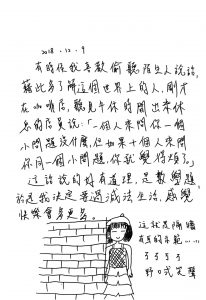 2018.12.9
有時候我喜歡偷聽陌生人說話,
藉此多了解這個世界上的人,剛才
在咖啡店,聽見午休時間出來休
息的店員說:「一個人來問你一個
小問題沒什麼,但如果十個人來問
你同一個小問題,你就覺得煩了。」
這話說的好有道理,是數學題,
於是我決定普過減法生活,感覺
快樂會多更多。
這就是隔牆
有耳的示範……
ㄎㄎㄎㄎ
野口式笑聲